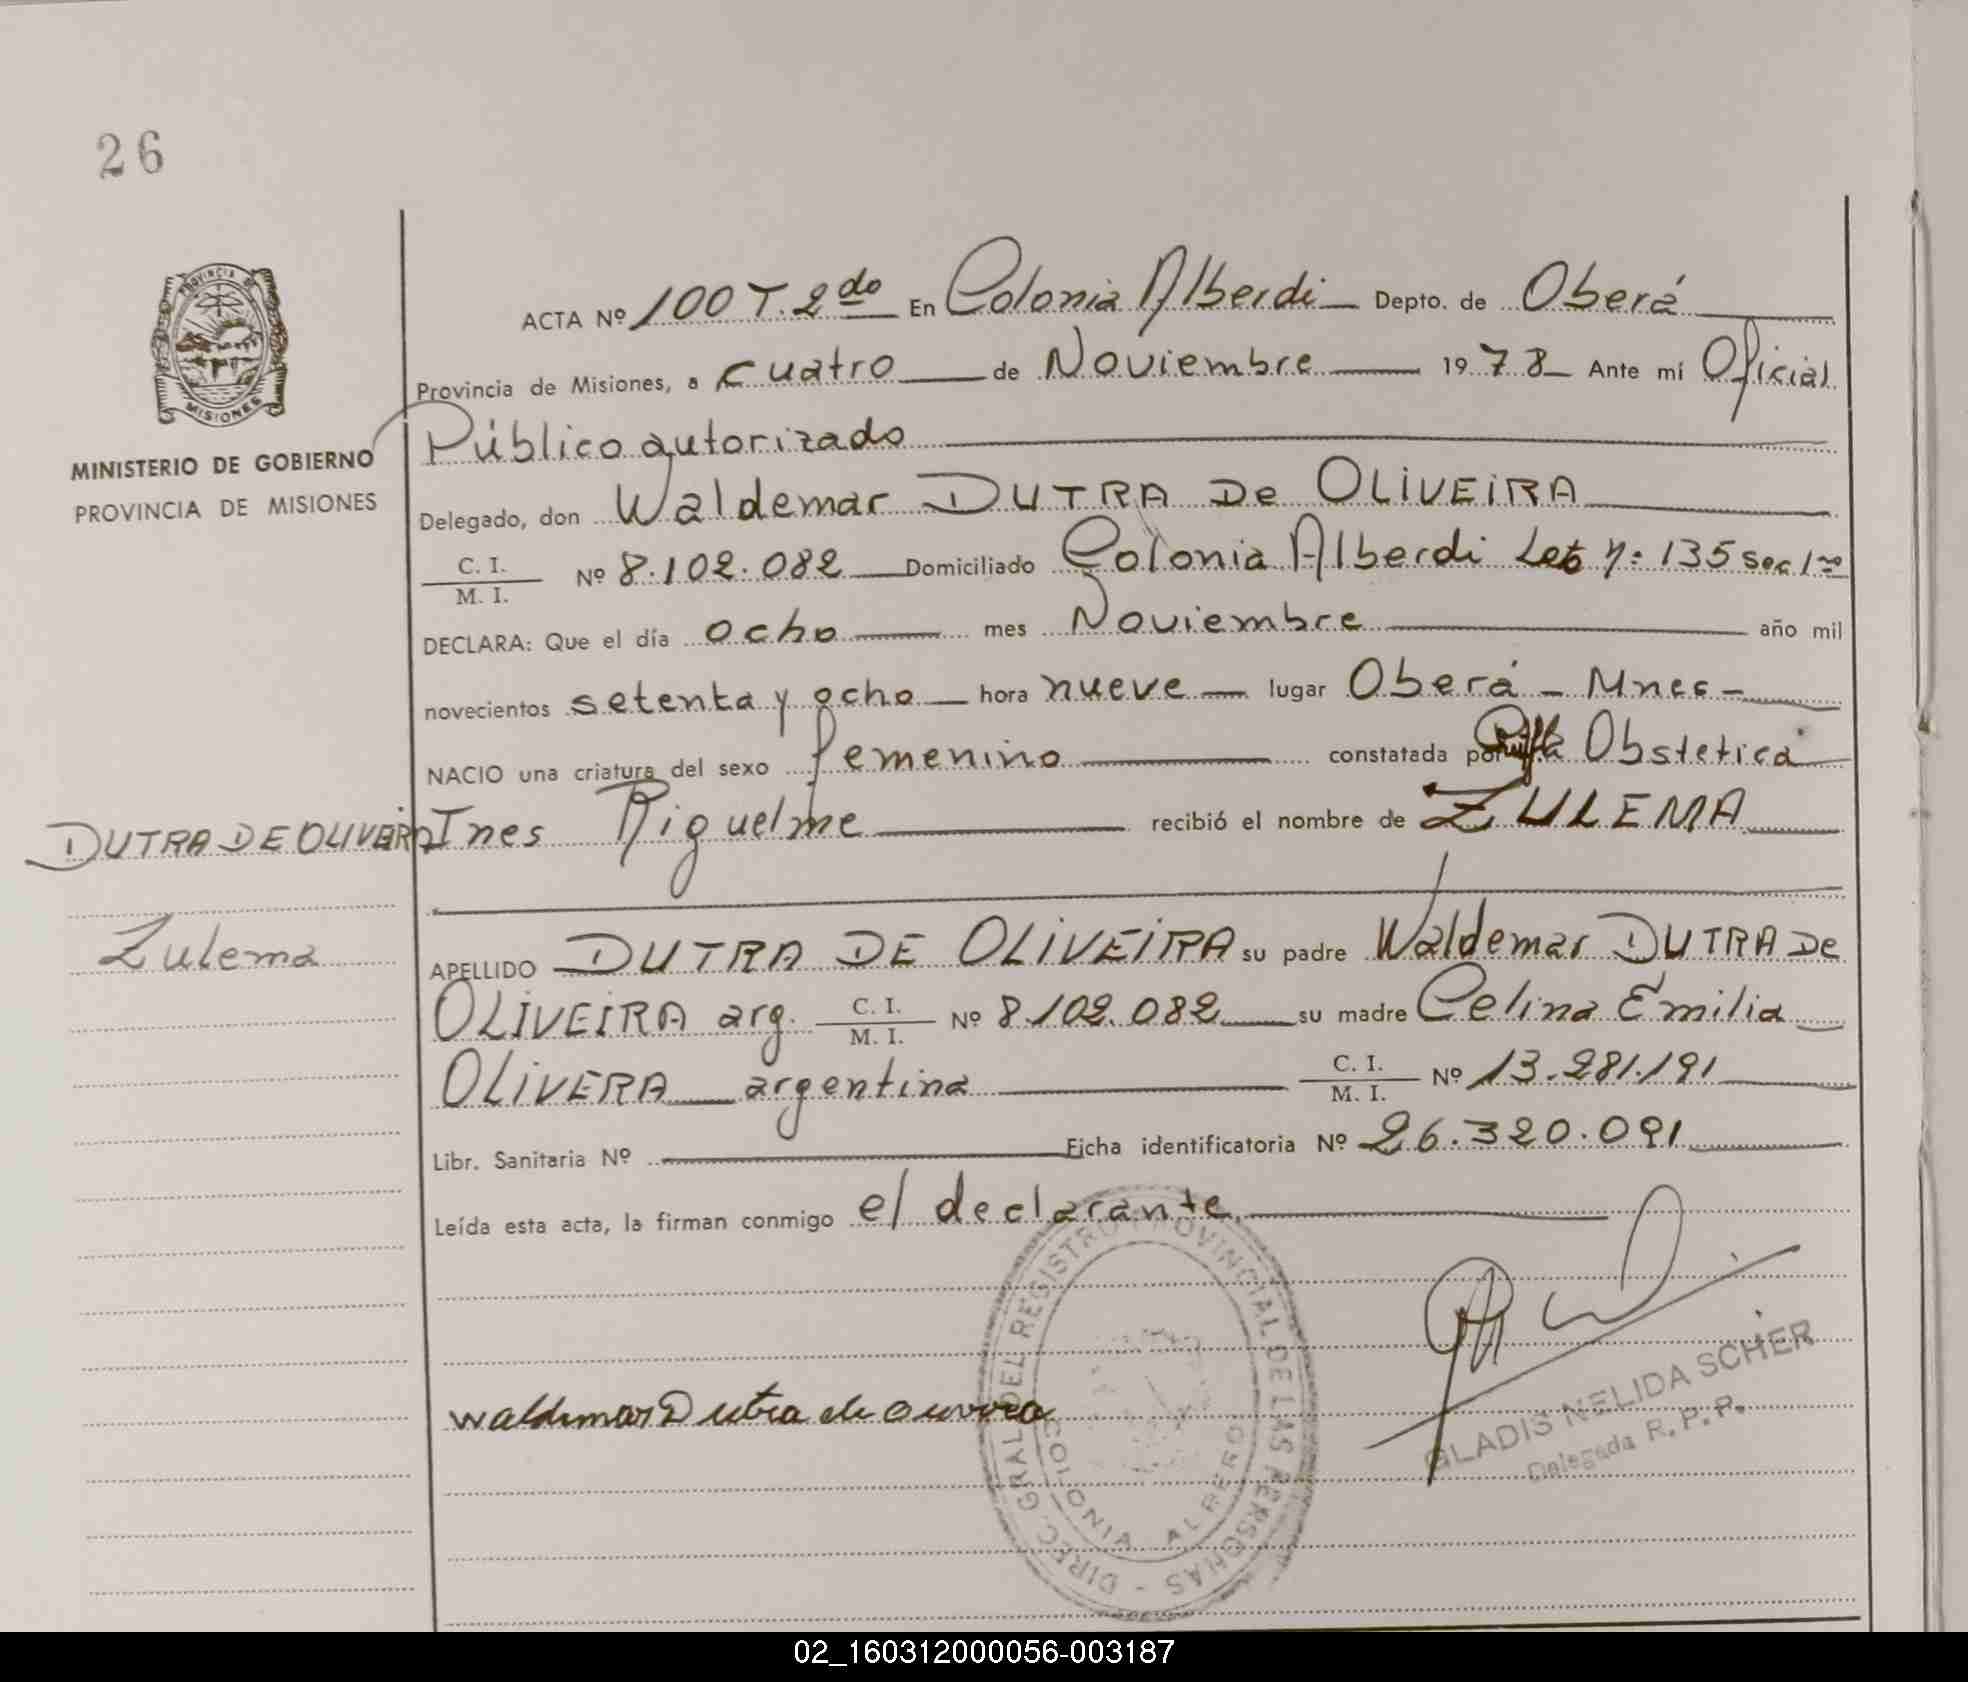 26
PROVINCIA DE
MISIONES
MINISTERIO DE GOBIERNO
PROVINCIA DE MISIONES
ACTA Nº 100 T. 2do En Colonia Alberdi Depto. de Oberá
Provincia de Misiones, a cuatro de Noviembre 1978 Ante mí Oficial
Público autorizado
Delegado, don Waldemar DUTRA De OLIVEIRA
C. I.
M. I. Nº 8.102.082 Domiciliado Colonia Alberdi Lote nº 135 sec 1ra
DECLARA: Que el día ocho mes Noviembre año mil
novecientos setenta y ocho hora nueve lugar Oberá - Mnes -
NACIO una criatura del sexo femenino constatada por Obstetica
Ines Riguelme recibió el nombre de ZULEMA
DUTRA DE OLIVEIRA
Zulema
APELLIDO DUTRA DE OLIVEIRA su padre Waldemar DUTRA De
OLIVEIRA arg. C. I.
M. I. Nº 8.102.082 su madre Celina Emilia
OLIVERA argentina C. I.
M. I. Nº 13.281.191
Libr. Sanitaria Nº Ficha identificatoria Nº 26.320.091
Leída esta acta, la firman conmigo el declarante
waldemar Dutra de
DIREC. GRAL. DEL REGISTRO PROVINCIAL DE LAS PERSONAS -
COLONIA ALBERDI
GLADIS NELIDA SCHER
Delegada R. P. P.
02_160312000056-003187